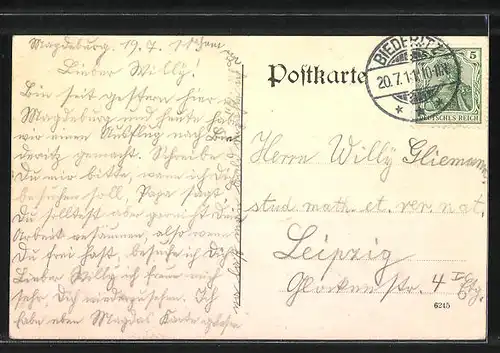 Magdeburg, 19.7.
Lieber Willy!
Bin seit gestern hier in
Magdeburg und heute haben
wir einen Ausflug nach Bie-
deritz gemacht. Schreibe
Du mir bitte, wann ich Dich
besuchen soll, Papa sagt
Du solltest aber ja nicht Deine
Arbeit versäumen, also wenn
Du frei hast, besuche ich Dich
Lieber Willy ich freue mich
sehr, Dich wiederzusehen. Ich
habe eben Magdas Karte gelesen
Postkarte
BIEDERITZ
20.7.11 10-11
5
DEUTSCHES REICH
Herrn Willy Gliemann
stud. math. et rer. nat.
Leipzig
Glockenstr. 4
6245